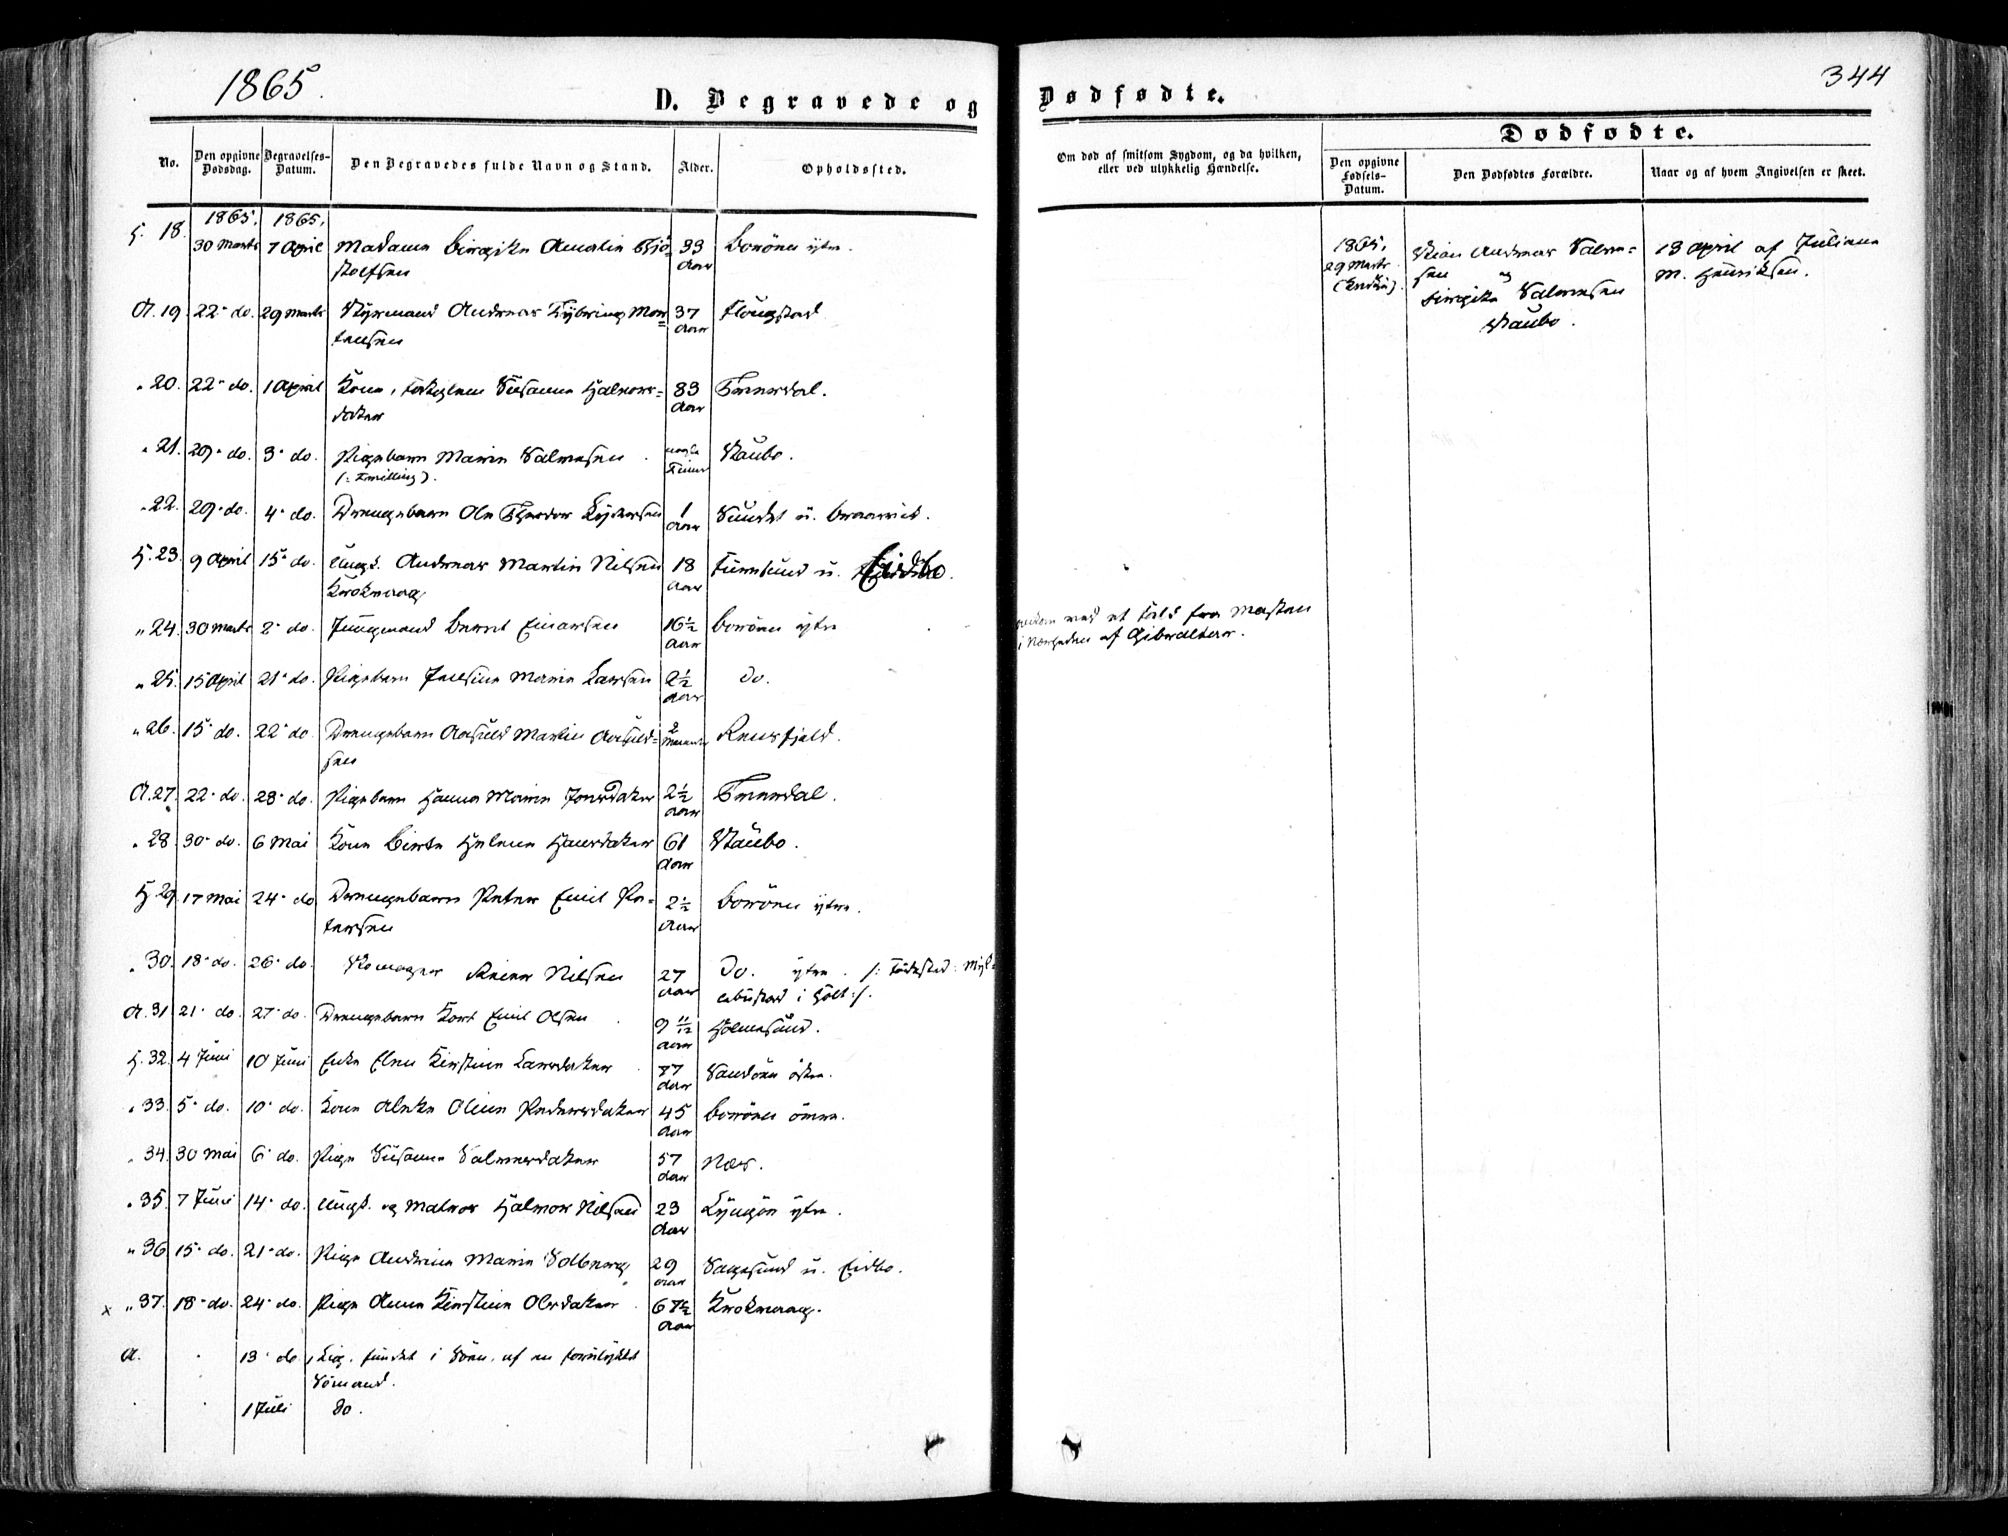 1865.
344
D. Begravede og Dødfødte.
Dødfødte.
No.
Den opgivne Dødsdag.
Begravelses-Datum.
Den Begravedes fulde Navn og Stand.
Alder.
Opholdssted.
Om død af smitsom Sygdom, og da hvilken, eller ved ulykkelig Hændelse.
Den opgivne Fødsels-Datum.
Den Dødfødtes Forældre.
Naar og af hvem Angivelsen er skeet.
1865. 1865.
H. 18. 30 Marts 7 April Madame Birgithe Amalie 33 Aar Borøen ytre.
A. 19. 22 do. 29 Marts Styrmand Andreas Tybring Mor= 37 Aar Flougstad
tensen
" 20. 22 do. 1 April Kone, Susanne Halvors= 83 Aar Tverdal.
datter
" 21. 29 do. 3 do. Pigebarn Maren Salvesen nogle Timer Staubo.
(: Tvilling).
" 22. 29 do. 4 do. Drengebarn Ole Theodor 1 Aar Sundet u.
H. 23. 9 April 15 do. Ungk. Andreas Martin Nilsen 18 Aar u. Eidbo.
Krokvaag
" 24. 30 Marts 2 do. Jungmand Bernt Einarsen 16½ Aar Borøen ytre
ved et Fald fra Masten
i Nærheden af Gibraltar.
" 25. 15 April 21 do. Pigebarn Jensine Marie Larsen 2½ Aar do.
" 26. 15 do. 22 do. Drengebarn Aasuld Martin Aasuld= 2 Maaneder
sen
A. 27. 22 do. 28 do. Pigebarn Hanna Maria Jensdatter 2½ Aar Tverdal.
" 28. 30 do. 6 Mai Kone Birte Helene Hansdatter 61 Aar Staubo.
H. 29 17 Mai 24 do Drengebarn Peter Emil Pe= 2½ Aar Borøen ytre.
tersen
" 30. 18 do. 26 do. Skomager Reier Nilsen 27 Aar do. ytre. /: Fødested:
i Holt:/.
A. 31. 21 do. 27 do. Drengebarn Kort Emil Olsen 9 11/12 Aar Holmesund.
H. 32. 4 Juni 10 Juni Enke Elen Kirstine Larsdatter 77 Aar Sandøen østre.
" 33. 5 do. 10 do. Kone Oline Pedersdatter 45 Aar Borøen
" 34. 30 Mai 6 do. Pige Susanne Salvesdatter 57 Aar Næs.
" 35. 7 Juni 14 do. Ungk. og Matros Halvor Nilsen 23 Aar Lyngøen ytre.
" 36 15 do. 21 do. Pige Andrine Marie Solberg 29 Aar Sagesund u. Eidbo.
x " 37. 18 do. 24 do. Pige Anne Kirstine Olsdatter 67½ Aar Krokvaag.
A. 13 do. Lig, fundet i Søen, af en forulykket
Sømand.
1 Juli do.
1865, 29 Marts
Stian Andreas Salve=
sen og
Birgithe Salvesen
Staubo.
13 April af Juliane
M. Henriksen.